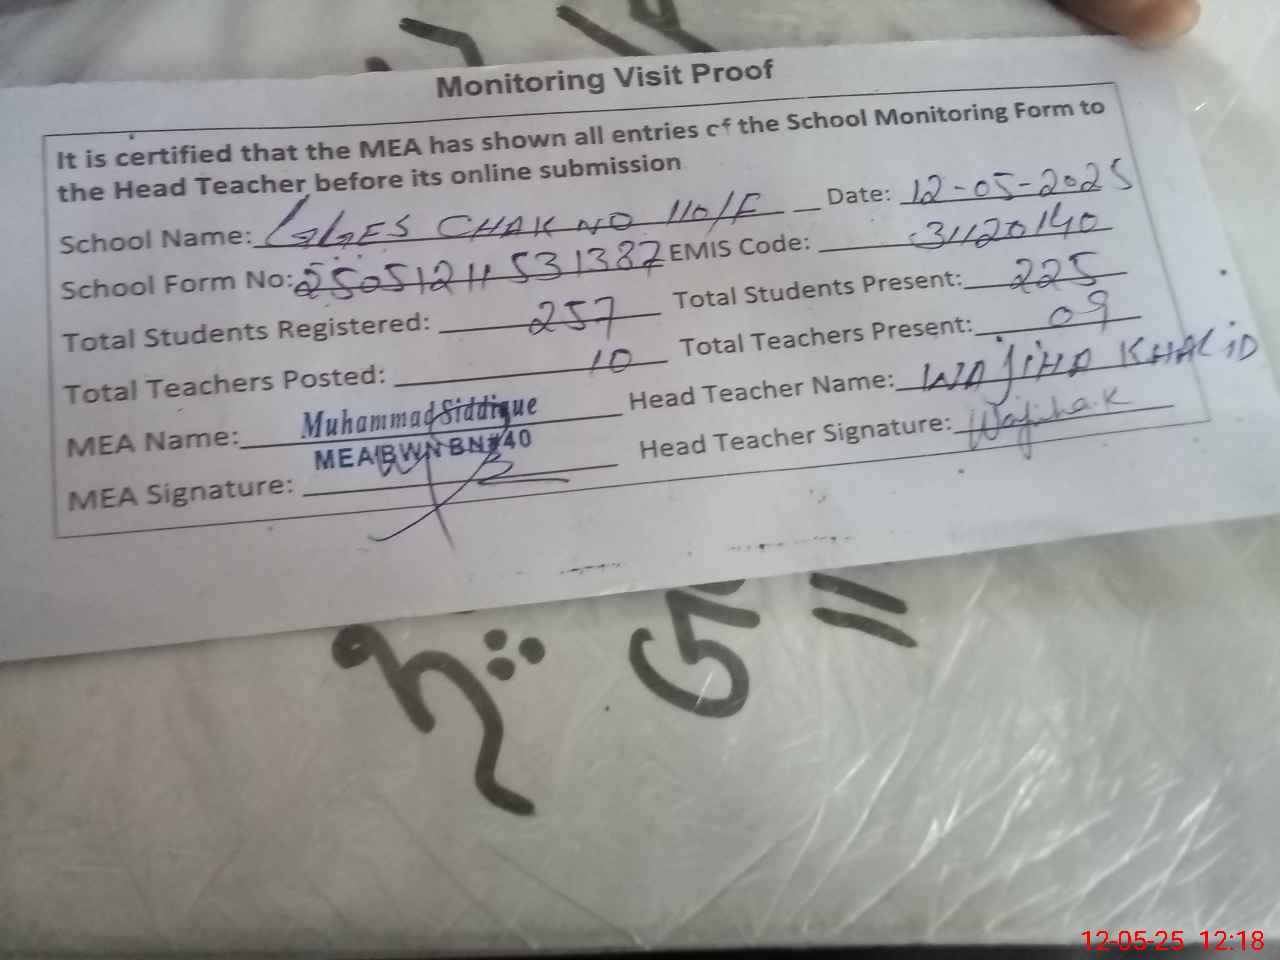 Monitoring Visit Proof
It is certified that the MEA has shown all entries of the School Monitoring Form to
the Head Teacher before its online submission
School Name: GGES CHAK NO 110/F Date: 12-05-2025
School Form No: 25051211531387 EMIS Code: 31120140
Total Students Registered: 257 Total Students Present: 225
Total Teachers Posted: 10 Total Teachers Present: 09
MEA Name: Muhammad Siddique Head Teacher Name: WAJIHA KHALID
MEA BWN BN#40
MEA Signature: Head Teacher Signature: Wajiha.K
12-05-25 12:18